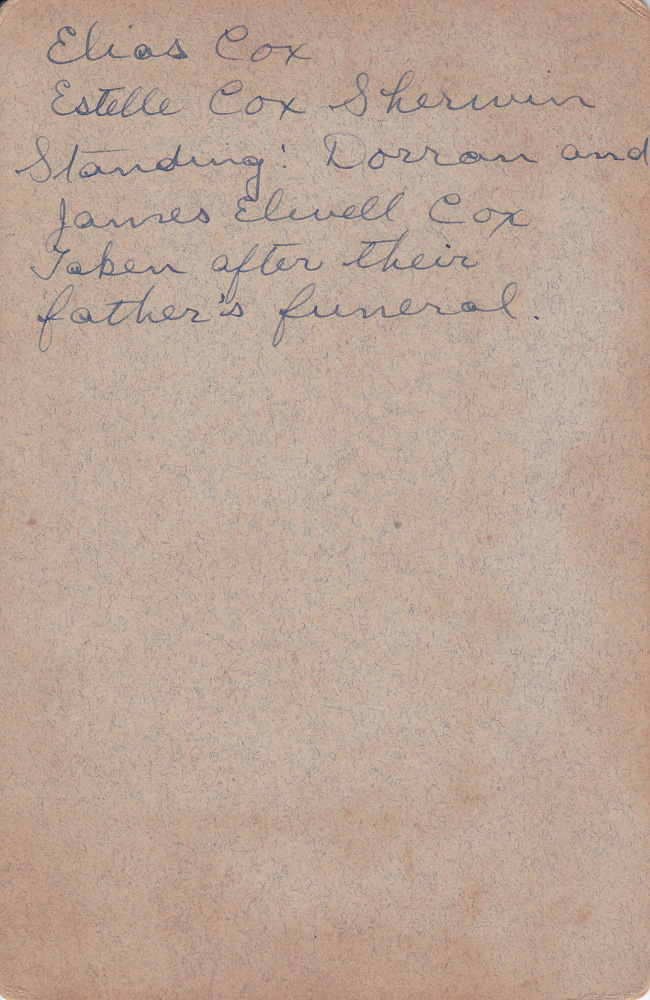 Elias Cox
Estelle Cox Sherwin
Standing: Dorran and
James Elwell Cox
Taken after their
father's funeral.